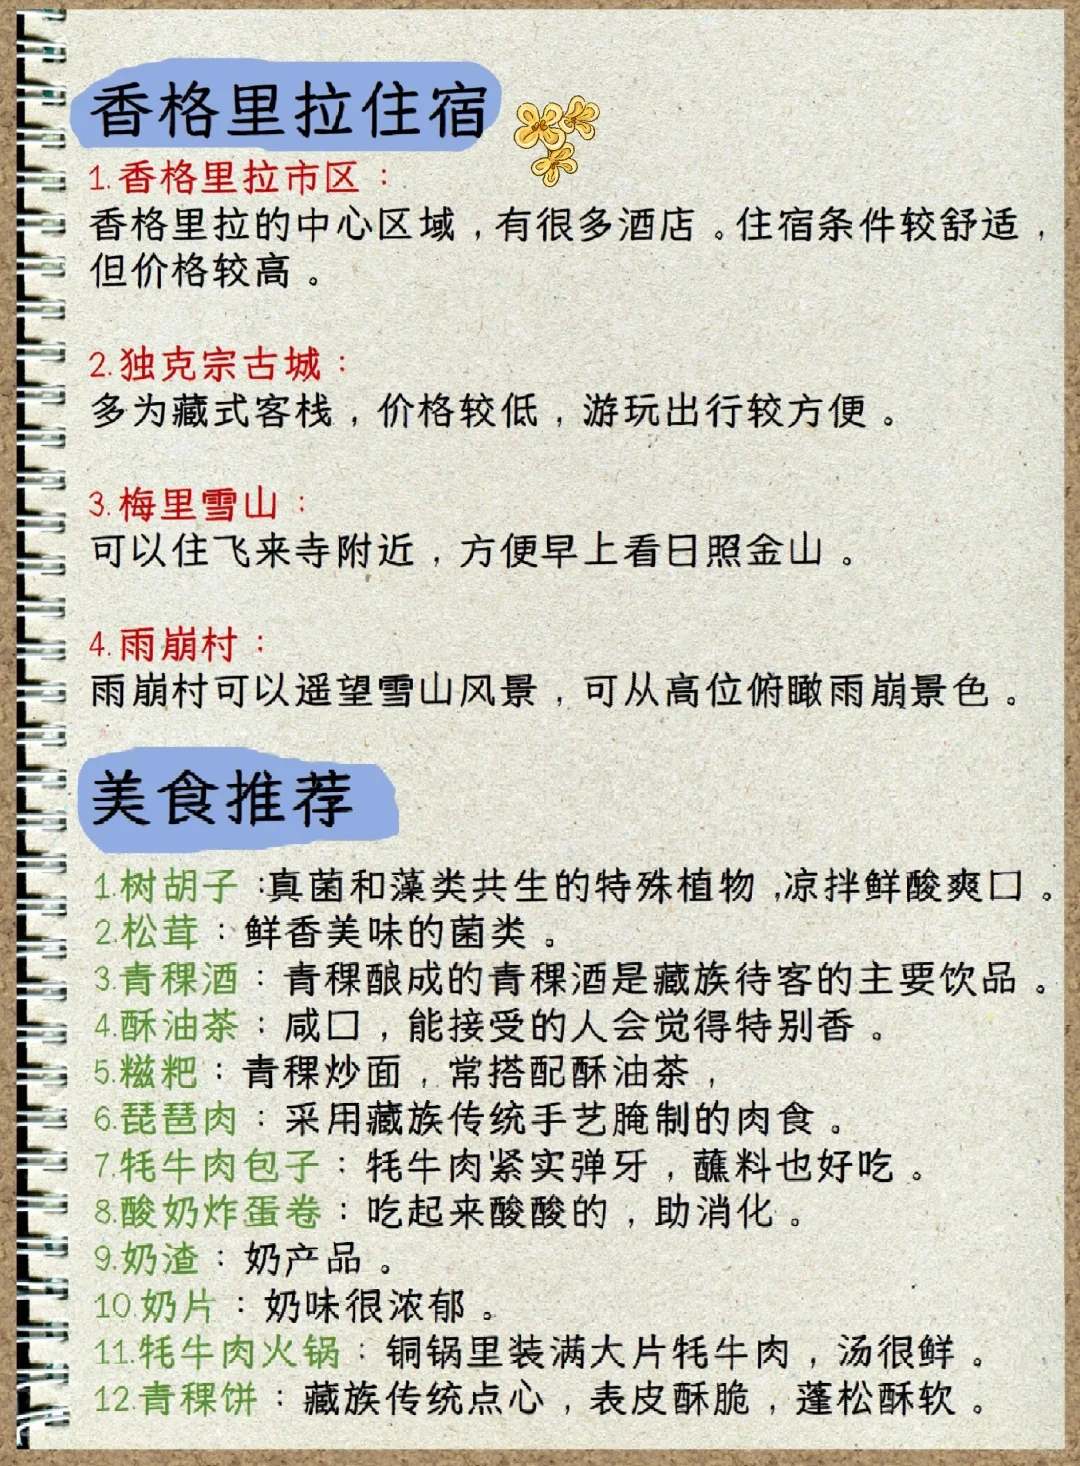 香格里拉住宿
1.香格里拉市区：
香格里拉的中心区域，有很多酒店。住宿条件较舒适，
但价格较高。
2.独克宗古城：
多为藏式客栈，价格较低，游玩出行较方便。
3.梅里雪山：
可以住飞来寺附近，方便早上看日照金山。
4.雨崩村：
雨崩村可以遥望雪山风景，可从高位俯瞰雨崩景色。
美食推荐
1.树胡子：真菌和藻类共生的特殊植物，凉拌鲜酸爽口。
2.松茸：鲜香美味的菌类。
3.青稞酒：青稞酿成的青稞酒是藏族待客的主要饮品。
4.酥油茶：咸口，能接受的人会觉得特别香。
5.糍粑：青稞炒面，常搭配酥油茶，
6.琵琶肉：采用藏族传统手艺腌制的肉食。
7.牦牛肉包子：牦牛肉紧实弹牙，蘸料也好吃。
8.酸奶炸蛋卷：吃起来酸酸的，助消化。
9.奶渣：奶产品。
10.奶片：奶味很浓郁。
11.牦牛肉火锅：铜锅里装满大片牦牛肉，汤很鲜。
12.青稞饼：藏族传统点心，表皮酥脆，蓬松酥软。